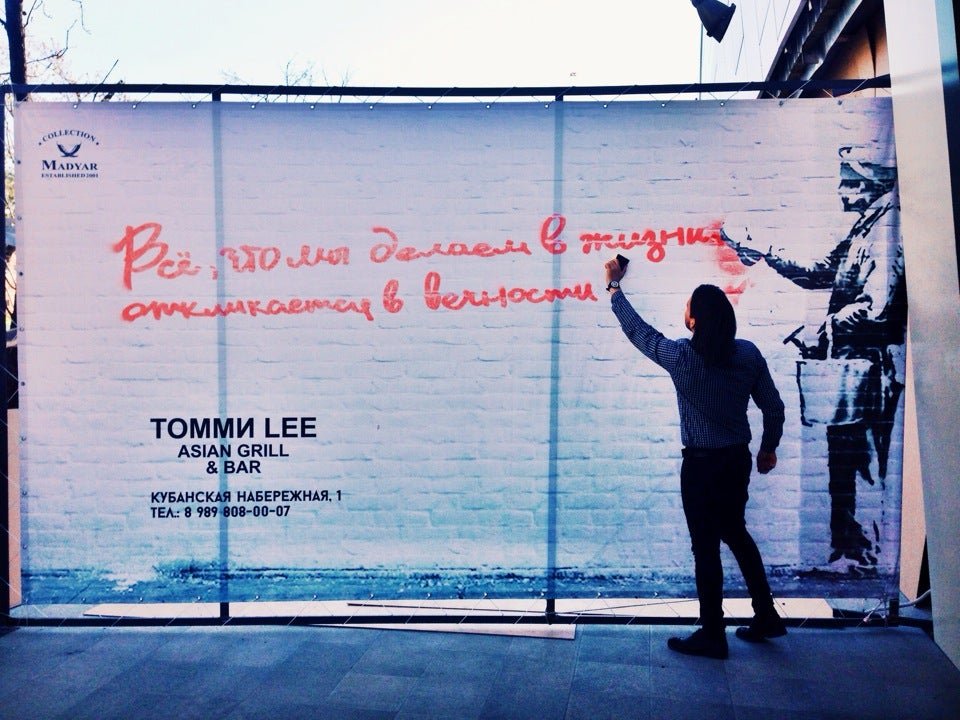 COLLECTION
MADYAR
ESTABLISHED 2001
Всё, что мы делаем в жизни
откликается в вечности
ТОММИ LEE
ASIAN GRILL
& BAR
КУБАНСКАЯ НАБЕРЕЖНАЯ, 1
ТЕЛ.: 8 989 808-00-07